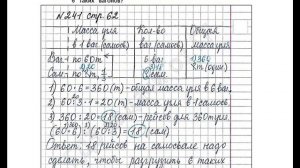 6 таких вагонов?
№241 стр. 62
Масса угля Кол-во Общая
в 1 ваг (самосв) ваг (самосв) масса угля
Ваг - по 60т 6 ваг
Сам - по 3т
1) 60·6=360(т) - общая масса угля в 6 ваг.
2) 60:3·1=20(т) - масса угля в 1 самосв.
3) 360:20=18(сам) - рейсов для 360т угля.
(60·6):(60:3)=18(сам)
Ответ: 18 рейсов на самосвале надо
сделать, чтобы разгрузить 6 таких